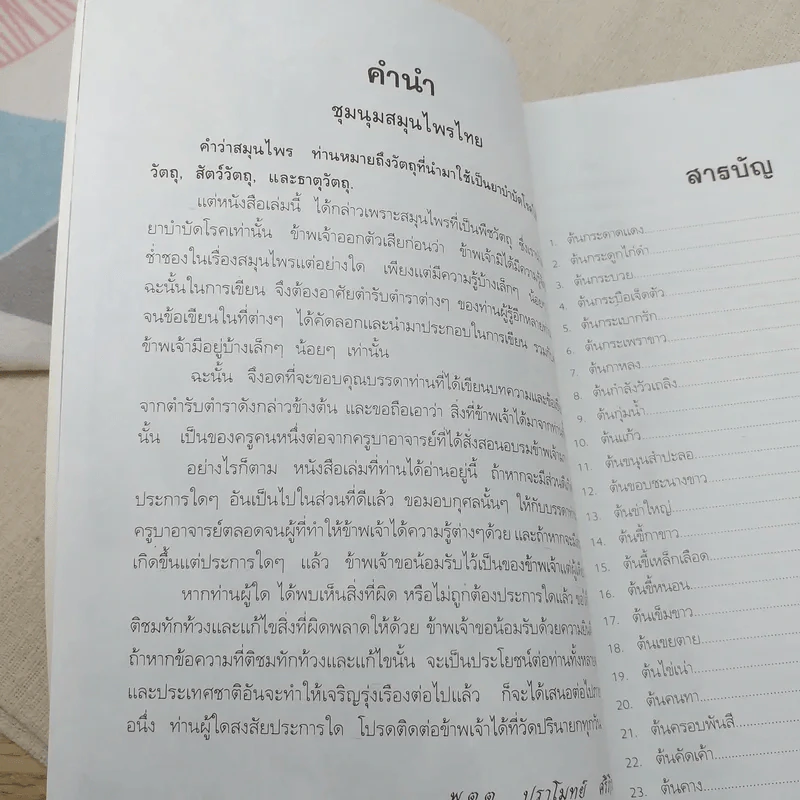 คำนำ
ชุมนุมสมุนไพรไทย
คำว่าสมุนไพร ท่านหมายถึงวัตถุที่นำมาใช้เป็นยาบำบัด
วัตถุ, สัตว์วัตถุ, และธาตุวัตถุ.
แต่หนังสือเล่มนี้ ได้กล่าวเพราะสมุนไพรที่เป็นพืชวัตถุ
ยาบำบัดโรคเท่านั้น ข้าพเจ้าออกตัวเสียก่อนว่า ข้าพเจ้ามิได้มีความรู้
ช่ำชองในเรื่องสมุนไพรแต่อย่างใด เพียงแต่มีความรู้บ้างเล็กๆ น้อยๆ
ฉะนั้นในการเขียน จึงต้องอาศัยตำรับตำราต่างๆ ของท่านผู้รู้อีกหลาย
จนข้อเขียนในที่ต่างๆ ได้คัดลอกและนำมาประกอบในการเขียน
ข้าพเจ้ามีอยู่บ้างเล็กๆ น้อยๆ เท่านั้น
ฉะนั้น จึงอดที่จะขอบคุณบรรดาท่านที่ได้เขียนบทความและ
จากตำรับตำราดังกล่าวข้างต้น และขอถือเอาว่า สิ่งที่ข้าพเจ้าได้มาจาก
นั้น เป็นของครูคนหนึ่งต่อจากครูบาอาจารย์ที่ได้สั่งสอนอบรมข้าพเจ้า
อย่างไรก็ตาม หนังสือเล่มที่ท่านได้อ่านอยู่นี้ ถ้าหากจะมีส่วน
ประการใดๆ อันเป็นไปในส่วนที่ดีแล้ว ขอมอบกุศลนั้นๆ ให้กับบรรดา
ครูบาอาจารย์ตลอดจนผู้ที่ทำให้ข้าพเจ้าได้ความรู้ต่างๆด้วย และถ้าหากจะ
เกิดขึ้นแต่ประการใดๆ แล้ว ข้าพเจ้าขอน้อมรับไว้เป็นของข้าพเจ้าแต่
หากท่านผู้ใด ได้พบเห็นสิ่งที่ผิด หรือไม่ถูกต้องประการใดแล้ว
ติชมทักท้วงและแก้ไขสิ่งที่ผิดพลาดให้ด้วย ข้าพเจ้าขอน้อมรับด้วยความ
ถ้าหากข้อความที่ติชมทักท้วงและแก้ไขนั้น จะเป็นประโยชน์ต่อท่านทั้งหลาย
และประเทศชาติอันจะทำให้เจริญรุ่งเรืองต่อไปแล้ว ก็จะได้เสนอต่อไป
อนึ่ง ท่านผู้ใดสงสัยประการใด โปรดติดต่อข้าพเจ้าได้ที่วัดปรินายกทุกวัน
พ.ต.ต. ปราโมทย์
สารบัญ
1. ต้นกระคาดแดง
2 ต้นกระดูกไก่ดำ
3. ต้นกระบวย
4. ต้นกระปือเจ็ดตัว
5. ต้นกระเบากรัก
6. ต้นกระเพราขาว
7. ต้นกาหลง
8. ต้นกำลังวัวเถลิง
9. ต้นกุ่มน้ำ
10. ต้นแก้ว
11. ต้นขนุนสำปะลอ
12. ต้นขอบชะนางขาว
13. ต้นข่าใหญ่
14. ต้นขี้กาขาว
15. ต้นขี้เหล็กเลือด
16. ต้นขี้หนอน
17. ต้นเข็มขาว
18. ต้นเขยตาย
19. ต้นไข่เน่า
20. ต้นคนทา
21. ต้นครอบพันสี
22. ต้นคัดเค้า
23. ต้นคาง